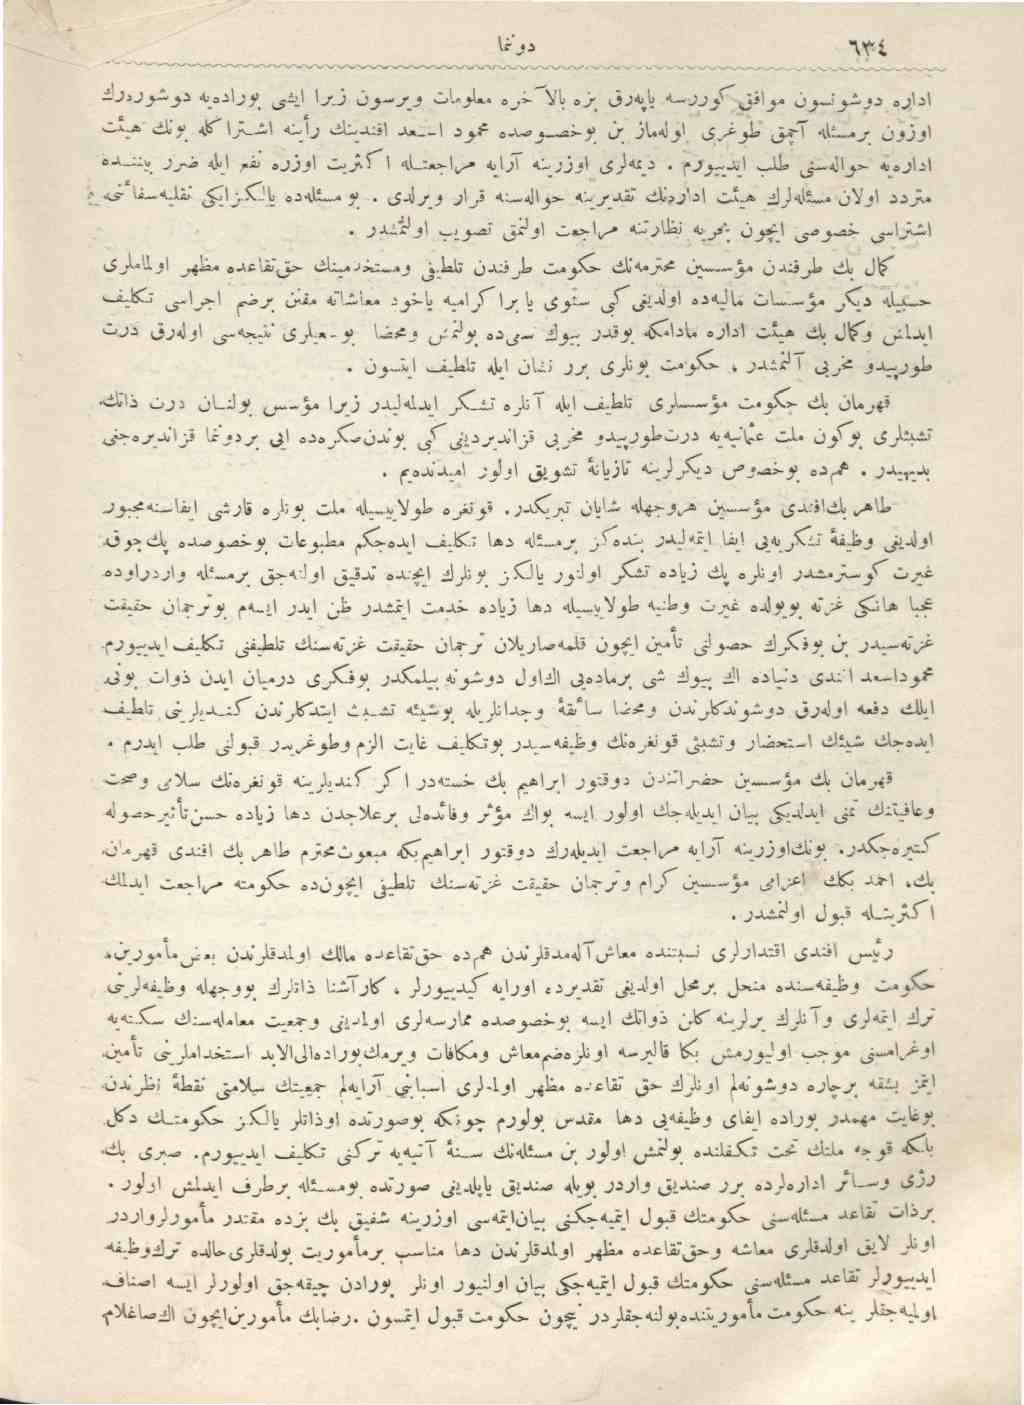 ٦٣٤
دوننما
اداره دوشونسون موافق كوررسه ياپه‌رق بزه بالآخره معلومات ويرسون زيرا ايشى بوراده‌يه دوشوره‌رك
اوزون برمسئله آچمق طوغرى اوله‌ماز بن بوخصوصده محمود اسعد افندينك رأينه اشتراكله بونك هيئت
اداره‌يه حواله‌سنى طلب ايدييورم . ديمه‌لرى اوزرينه آرايه مراجعتله اكثريت اوزره نفع ايله ضرر بيننده
متردد اولان مسئله‌لرك هيئت اداره‌نك تقديرينه حواله‌سنه قرار ويرلدى . بو مسئله‌ده يالكز ايكى نقليه سفائنى
اشتراسى خصوصى ايچون بحريه نظارتنه مراجعت اولنمق تصويب اولنمشدر .
كمال بك طرفندن مؤسسين محترمه‌نك حكومت طرفندن تلطيفى ومستخدمينك حق تقاعده مظهر اولماملرى
حسبيله ديكر مؤسسات ماليه‌ده اولديغى كبى سنوى يا برا كراميه ياخود معاشاته مقنن برضم اجراسى تكليف
ايدلمش وكمال بك هيئت اداره مادامكه بوقدر بيوك سعى‌ده بولنمش ومحضا بو سعيلرى نتيجه‌سى اوله‌رق درت
طورپيدو مخربى آلنمشدر ، حكومت بونلرى برر نشان ايله تلطيف ايتسون .
قهرمان بك حكومت مؤسسلرى تلطيف ايله آنلره تشكر ايدلمه‌ليدر زيرا مؤسس بولنان درت ذاتك
تشبثلرى بوكون ملت عثمانيه‌يه درت طورپيدو مخربى قزانديرديغى كبى بوندن صكره‌ده ايى بر دوننما قزانديره‌جغى
بديهيدر . هم‌ده بوخصوص ديكرلرينه تازيانۀ تشويق اولور اميدنده‌يم .
طاهر بك افندى مؤسسين هروجهله شايان تبريكدر. قونغره طولاييسيله ملت بونلره قارشى ايفاسنه مجبور
اولديغى وظيفۀ تشكريه‌يى ايفا ايتمه‌ليدر بنده‌كز برمسئله دها تكليف ايده‌جكم مطبوعات بوخصوصده پك چوق
غيرت كوسترمشدر اونلره پك زياده تشكر اولنور يالكز بونلرك ايچنده تدقيق اولنه‌جق برمسئله واردر اوده
عجبا هانكى غزته بويولده غيرت وطنيه طولاييسيله دها زياده خدمت ايتمشدر ظن ايدر ايسه‌م بوترجمان حقيقت
غزته‌سيدر بن بوفكرك حصولنى تأمين ايچون قلمه صاريلان ترجمان حقيقت غزته‌سنك تلطيفنى تكليف ايدييورم
محمود اسعد افندى دنياده اك بيوك شى برماده‌يى اك اول دوشونه بيلمكدر بوفكرى درميان ايدن ذوات بونى
ايلك دفعه اوله‌رق دوشوندكلرندن ومحضا سائقۀ وجدانلريله بوشيئه تشبث ايتدكلرندن كنديلرينى تلطيف
ايده‌جك شيئك استحضار وتشبثى قونغره‌نك وظيفه‌سيدر بوتكليف غايت الزم وطوغريدر قبولنى طلب ايدرم .
قهرمان بك مؤسسين حضراتندن دوقتور ابراهيم بك خسته‌در اكر كنديلرينه قونغره‌نك سلامى وصحت
وعافيتنك تمنى ايدلديكى بيان ايديله‌جك اولور ايسه بواك مؤثر وفائده‌لى برعلاجدن دها زياده حسن تأثير حصوله
كتيره‌جكدر. بونك اوزرينه آرايه مراجعت ايديله‌رك دوقتور ابراهيم بكه مبعوث محترم طاهر بك افندى قهرمان
بك، احمد بكك اعزامى مؤسسين كرام وترجمان حقيقت غزته‌سنك تلطيفى ايچون‌ده حكومته مراجعت ايدلمك
اكثريتله قبول اولنمشدر .
رئيس افندى اقتدارلرى نسبتنده معاش آله‌مدقلرندن هم‌ده حق تقاعده مالك اولمدقلرندن بعض مأمورين،
حكومت وظيفه‌سنده منحل برمحل اولديغى تقديرده اورايه كيدييورلر ، كارآشنا ذاتلرك بووجهله وظيفه‌لرينى
ترك ايتمه‌لرى وآنلرك يرلرينه كلن ذواتك ايسه بوخصوصده ممارسه‌لرى اولمديغى وجمعيت معامله‌سنك سكته‌يه
اوغرامسنى موجب اولييورمش بكا قاليرسه اونلره ضم معاش ومكافات ويرمك بوراده الى‌الابد استخداملرينى تأمين
ايتمز بشقه برچاره دوشونه‌لم اونلرك حق تقاعده مظهر اولملرى اسبابنى آرايه‌لم جمعيتك سلامتى نقطۀ نظرندن
بوغايت مهمدر بوراده ايفاى وظيفه‌يى دها مقدس بولورم چونكه بوصورتده اوذاتلر يالكز حكومتك دكل
بلكه قوجه ملتك تحت تكفلنده بولنمش اولور بن مسئله‌نك سنۀ آتيه‌يه تركنى تكليف ايدييورم. صبرى بك
رژى وسائر اداره‌لرده برر صنديق واردر بويله صنديق ياپلديغى صورتده بومسئله برطرف ايدلمش اولور .
برذات تقاعد مسئله‌سنى حكومتك قبول ايتميه‌جكنى بيان ايتمه‌سى اوزرينه شفيق بك بزده مقتدر مأمورلر واردر
اونلر لايق اولدقلرى معاشه وحق تقاعده مظهر اولمدقلرندن دها مناسب برمأموريت بولدقلرى حالده ترك وظيفه
ايدييورلر تقاعد مسئله‌سنى حكومتك قبول ايتميه‌جكى بيان اولنيور اونلر بورادن چيقه‌جق اولورلر ايسه اصناف
اولميه‌جقلر ينه حكومت مأموريتنده بولنه‌جقلردر نيچون حكومت قبول ايتمسون . رضا بك مأمورين ايچون اك صاغلام